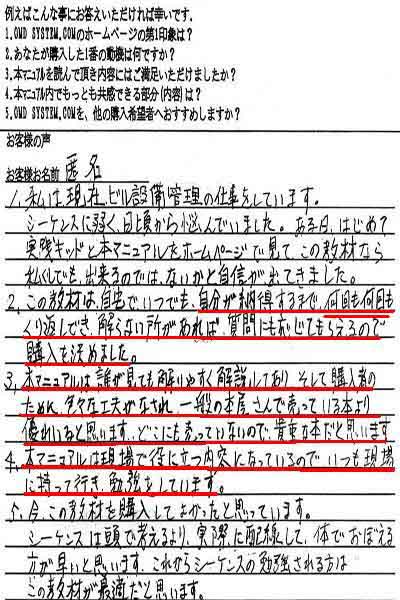 例えばこんな事にお答えいただければ幸いです.
1.OMD SYSTEM.COMのホームページの第1印象は?
2.あなたが購入した1番の動機は何ですか?
3.本マニュアルを読んで頂き内容にはご満足いただけましたか?
4.本マニュアル内でもっとも共感できる部分(内容)は?
5.OMD SYSTEM.COMを、他の購入希望者へおすすめしますか?
お客様の声
お客様お名前 匿名
1、私は現在、ビル設備管理の仕事をしています.
シーケンスに弱く、日頃から悩んでいました。ある日、はじめて
実践キッドと本マニュアルをホームページで見て、この教材なら
私くしでも、出来るのでは、ないかと自信が出てきました。
2、この教材は、自宅でいつでも、自分が納得するまで、何回も何回も
くり返しでき、解らない所があれば、質問にも応じてもらえるので
購入を決めました。
3、本マニュアルは、誰が見ても解りやすく解説してあり、そして購入者の
ために、色々な工夫がなされ、一般の本屋さんで売っている本より
優れいると思います。どこにも売っていないので、貴重な本だと思います
4、本マニュアルは現場で役に立つ内容になっているので、いつも現場
に持って行き、勉強をしています。
5、今、この教材を購入してよかったと思っています。
シーケンスは頭で考えるより、実際に配線して、体でおぼえる
方が早いと思います、これからシーケンスの勉強される方は
この教材が最適だと思います。